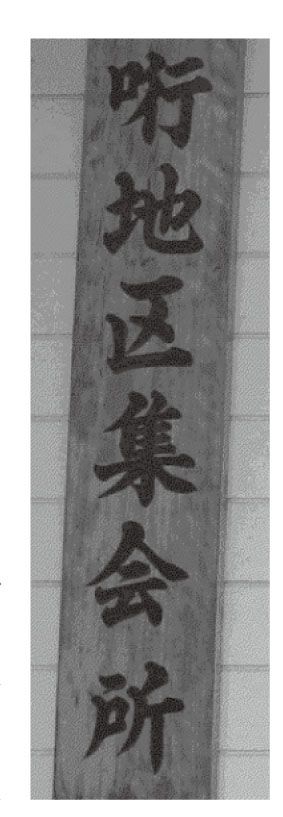 哘地区集会所